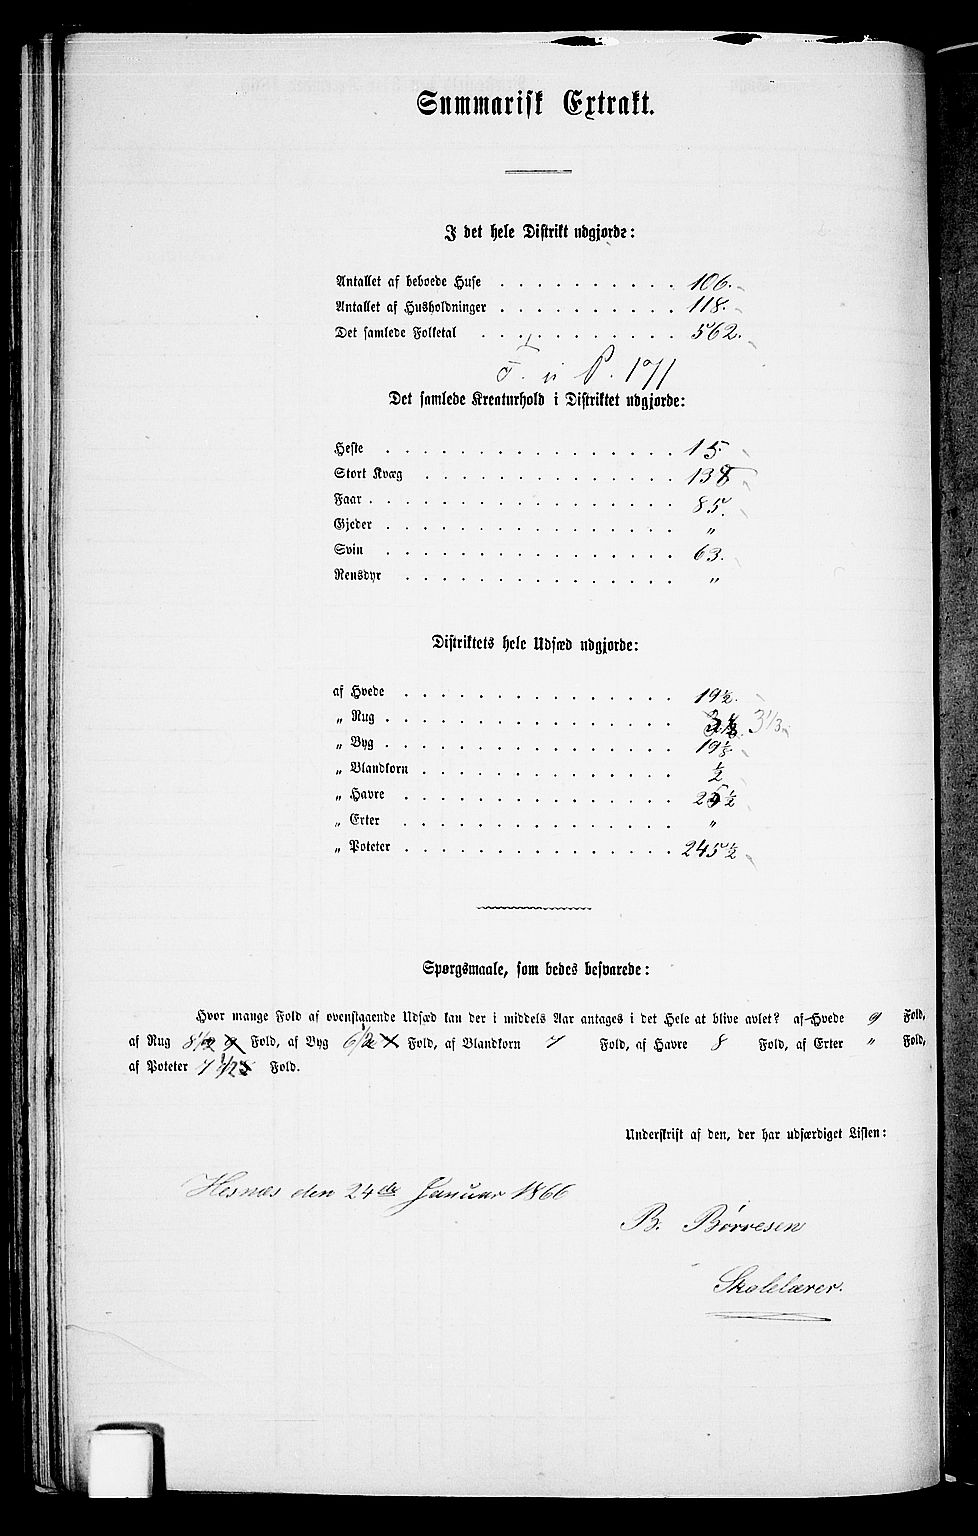 Summarisk Extrakt.
I det hele Distrikt udgjorde:
Antallet af beboede Huse . . . . . . . . . . 106.
Antallet af Husholdninger . . . . . . . . . . 118.
Det samlede Folketal . . . . . . . . . . . 562.
T. u P. 171
Det samlede Kreaturhold i Distriktet udgjorde:
Heste . . . . . . . . . . . . . . . 15.
Stort Kvæg . . . . . . . . . . . . . 138
Faar . . . . . . . . . . . . . . . . 85.
Gjeder . . . . . . . . . . . . . . . "
Svin . . . . . . . . . . . . . . . 63.
Rensdyr . . . . . . . . . . . . . . "
Distriktets hele Udsæd udgjorde:
af Hvede . . . . . . . . . . . . . . 19½.
„ Rug . . . . . . . . . . . . . . . 3 1/3
„ Byg . . . . . . . . . . . . . . . 19½
„ Blandkorn . . . . . . . . . . . . . ½
„ Havre . . . . . . . . . . . . . . 25½
„ Erter . . . . . . . . . . . . . . "
„ Poteter . . . . . . . . . . . . . 245½
Spørgsmaale, som bedes besvarede:
Hvor mange Fold af ovenstaaende Udsæd kan der i middels Aar antages i det Hele at blive avlet? af Hvede 9 Fold,
af Rug 8½ Fold, af Byg 6½ Fold, af Blandkorn 7 Fold, af Havre 8 Fold, af Erter " Fold,
af Poteter 7½ Fold.
Underskrift af den, der har udfærdiget Listen:
Hesnæs den 24de Januar 1866
B. Børresen
Skolelærer.